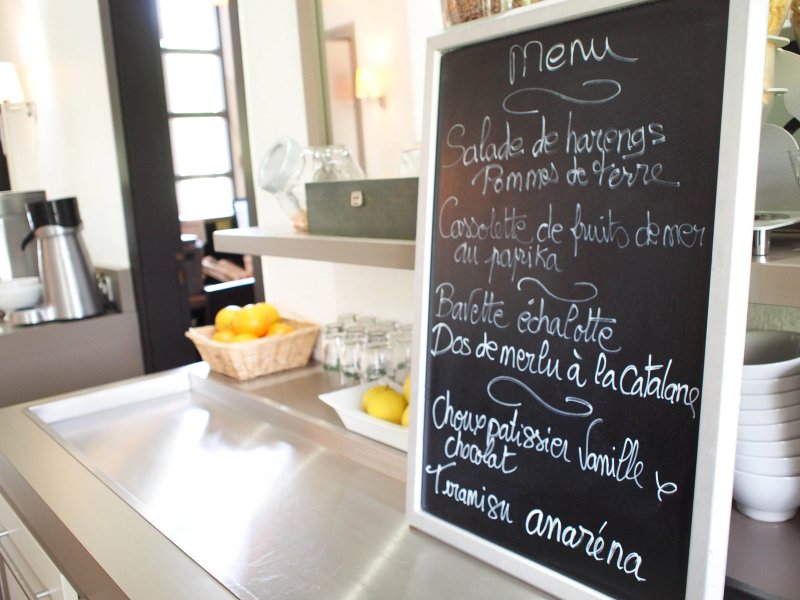 Menu
Salade de harengs
Pommes de terre
Cassolette de fruits de mer
au paprika
Bavette échalotte
Dos de merlu à la Catalane
Choux patissier Vanille &
chocolat
Tiramisu anaréna